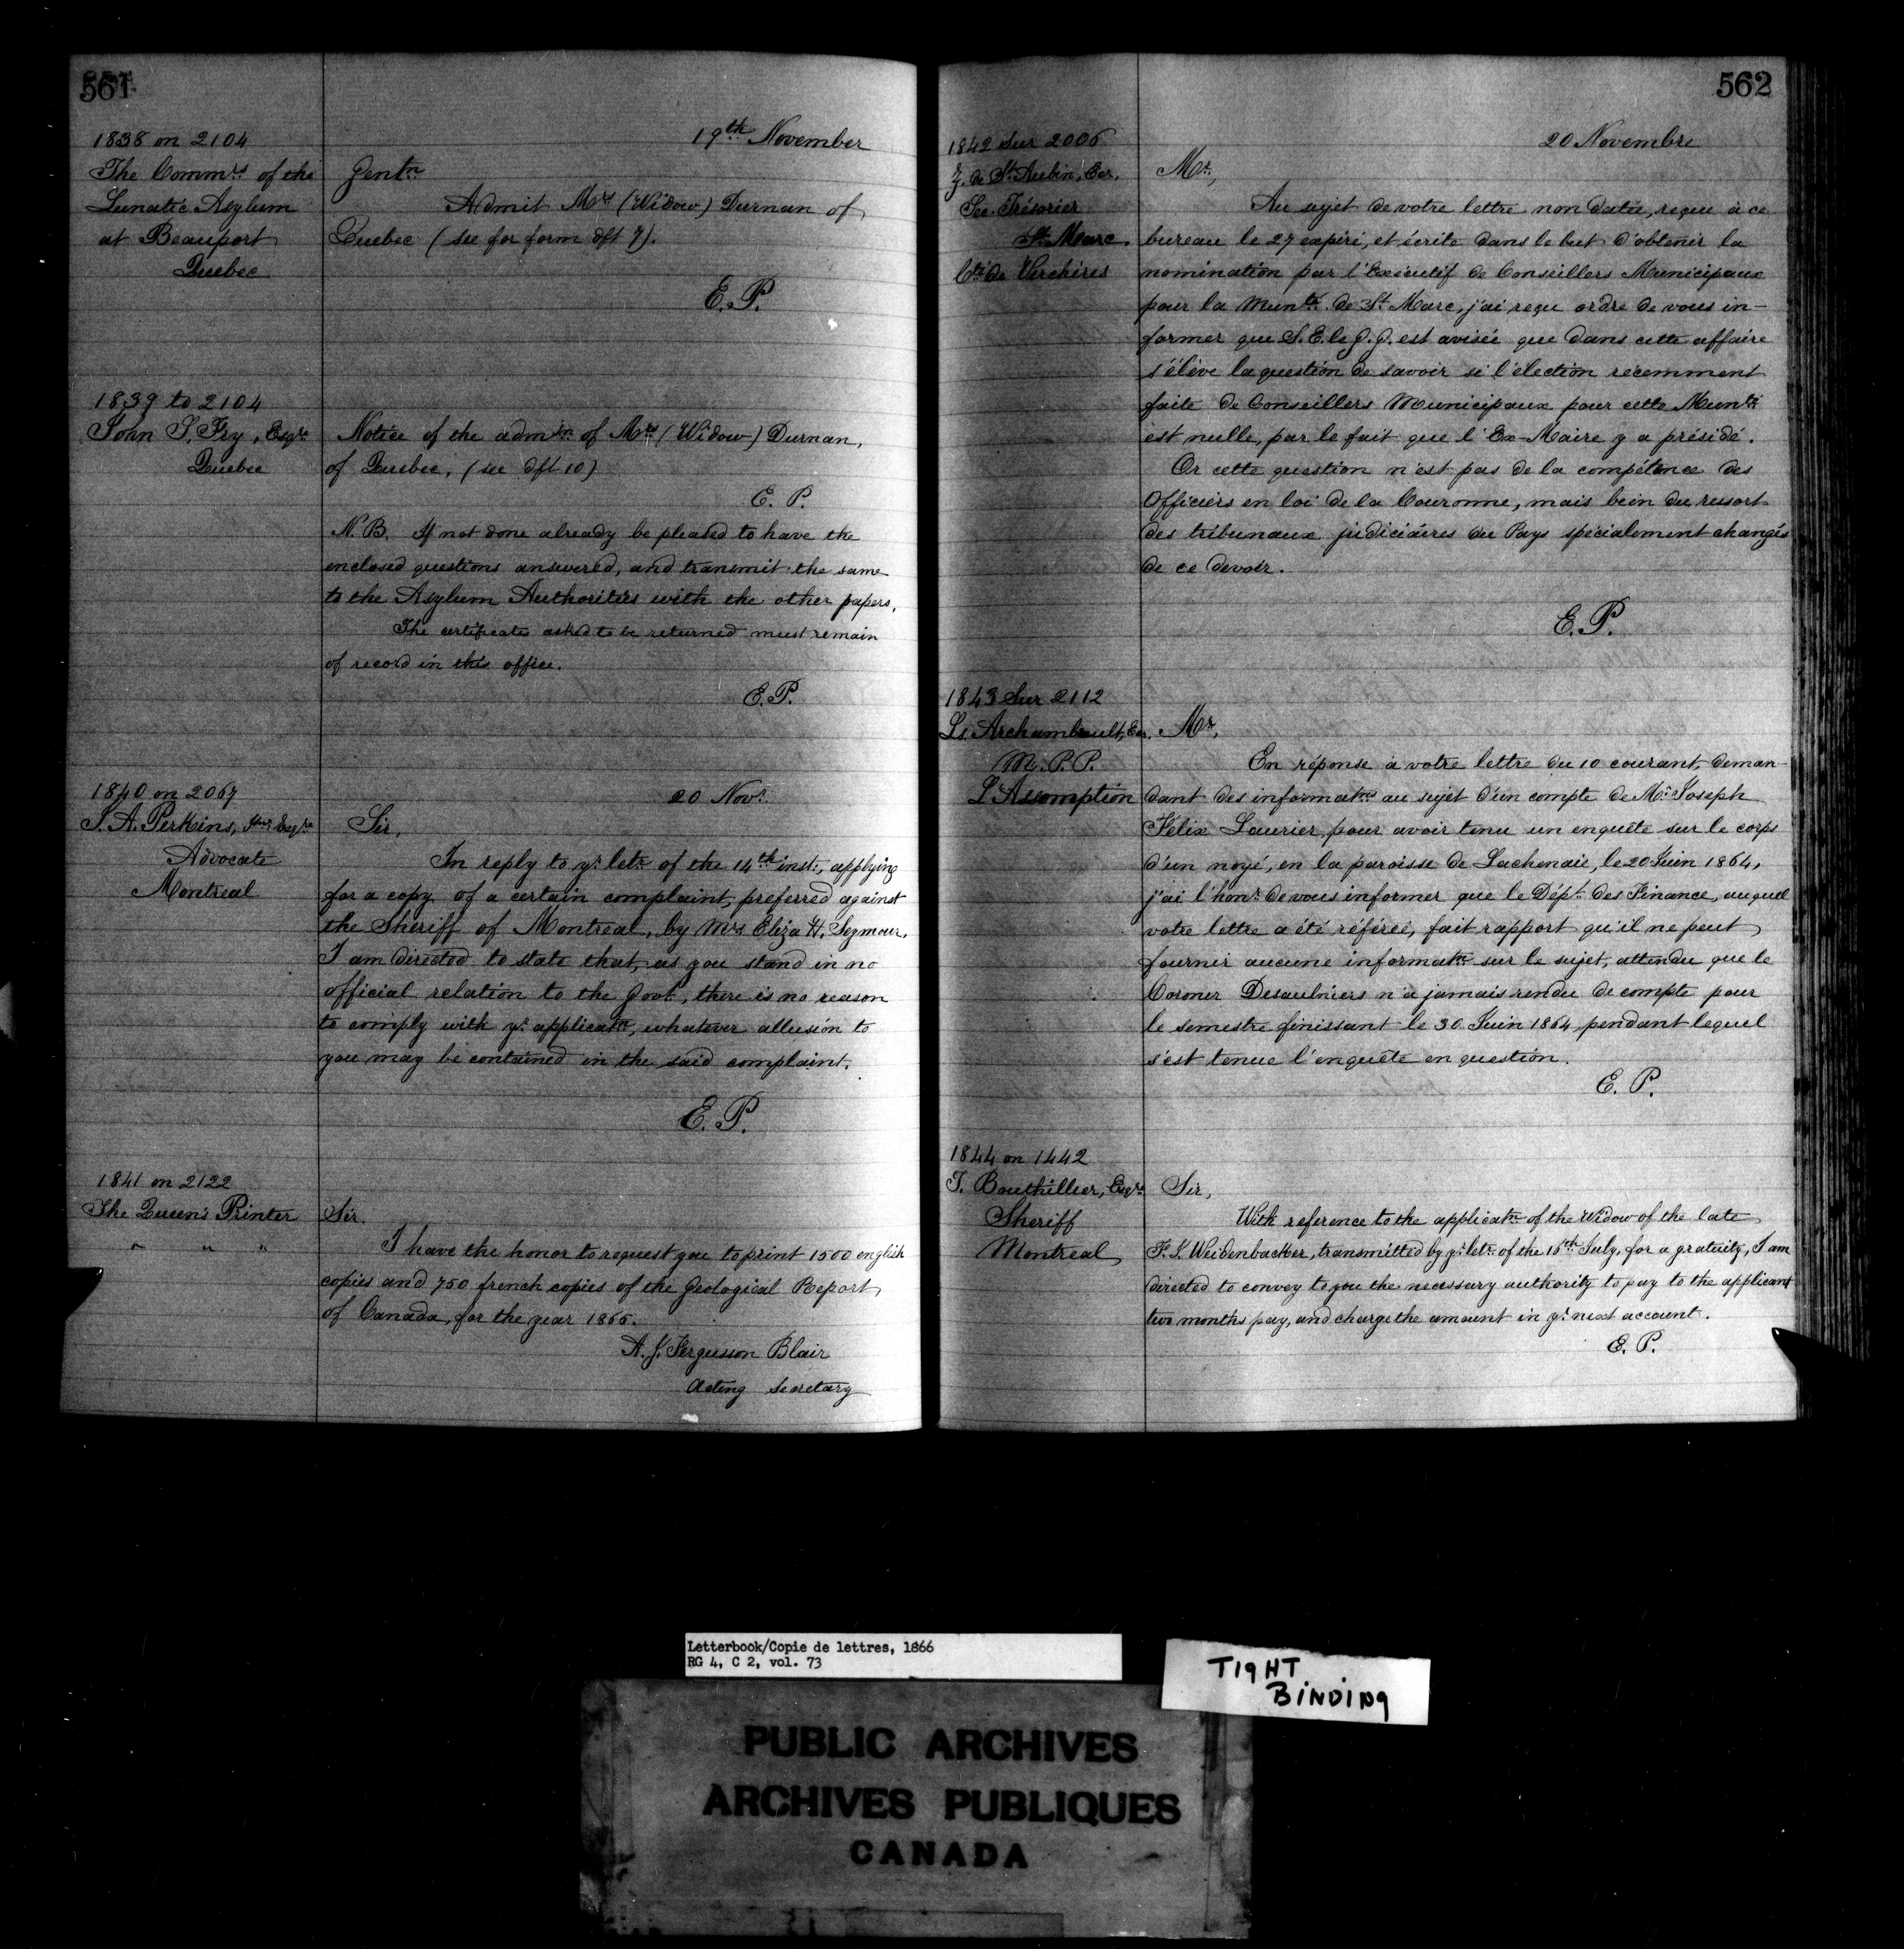 561
19th November
1838 on 2104
The Commrs of the
Lunatic Asylum
at Beauport
Quebec
Gentn
Admit Mrs (Widow) Durnan of
Quebec (see for form dft 7).
E. P.
1839 to 2104
John S. Fry, Esqre
Quebec
Notice of the admtn of Mrs (Widow) Durnan,
of Quebec, (see dft 10)
E. P.
N.B. If not done already be pleased to have the
enclosed questions answered, and transmit the same
to the Asylum Authorities with the other papers,
The certificate asked to be returned must remain
of record in this office.
E. P.
20 Novr.
1840 on 2067
J. A. Perkins, Junr Esqre
Advocate
Montreal
Sir,
In reply to yr letr of the 14th inst, applying
for a copy of a certain complaint, preferred against
the Sheriff of Montreal, by Mrs Eliza H. Seymour,
I am directed to state that, as you stand in no
official relation to the Govt, there is no reason
to comply with yr applicatn, whatever allusion to
you may be contained in the said complaint.
E. P.
1841 on 2122
The Queen's Printer
" " "
Sir.
I have the honor to request you to print 1500 english
copies and 750 french copies of the Geological Report
of Canada, for the year 1866.
A. J. Fergusson Blair
Acting Secretary
562
20 Novembre
1842 Sur 2006
Z. de St Aubin, Ecr,
Sec. Trésorier
St Marc.
Cté de Verchères
Mr,
Au sujet de votre lettre non datée, reçue à ce
bureau le 27 expiré, et écrite dans le but d'obtenir la
nomination par l'Exécutif de Conseillers Municipaux
pour la Munté de St Marc, j'ai reçu ordre de vous in-
former que S. E. le G. G. est avisée que dans cette affaire
s'élève la question de savoir si l'élection récemment
faite de Conseillers Municipaux pour cette Munté
est nulle, par le fait que l'Ex-Maire y a présidé.
Or cette question n'est pas de la compétence des
Officiers en loi de la Couronne, mais bein du ressort
des tribunaux judiciaires du Pays spécialement changés
de ce devoir.
E. P.
1843 Sur 2112
Ls. Archambault, Ecr,
M. P. P.
L'Assomption
Mr,
En réponse à votre lettre du 10 courant, deman-
dant des informatns au sujet d'un compte de Mr Joseph
Félix Laurier, pour avoir tenu un enquête sur le corps
d'un noyé, en la paroisse de Lachenaie, le 20 Juin 1864,
j'ai l'honr de vous informer que le Dépt des Finance, auquel
votre lettre a été référée, fait rapport qu'il ne peut
fournir aucune informatn sur le sujet, attendu que le
Coroner Desaulniers n'a jamais rendu de compte pour
le semestre finissant le 30 Juin 1864, pendant lequel
s'est tenue l'enquête en question.
E. P.
1844 on 1442
T. Bouthillier, Esqre
Sheriff
Montreal
Sir,
With reference to the applicatn of the widow of the late
F. S. Weidenbacker, transmitted by yr letr of the 18th July, for a gratuity, I am
directed to convey to you the necessary authority to pay to the applicant
two months pay, and charge the amount in yr next account.
E. P.
Letterbook/Copie de lettres, 1866
RG 4, C 2, vol. 73
TIGHT
BINDING
PUBLIC ARCHIVES
ARCHIVES PUBLIQUES
CANADA